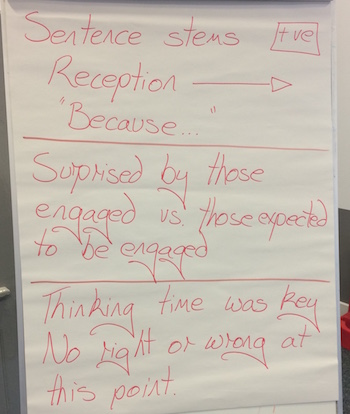 Sentence stems +ve
Reception
"Because..."
Surprised by those
engaged vs. those expected
to be engaged
Thinking time was key
No right or wrong at
this point.